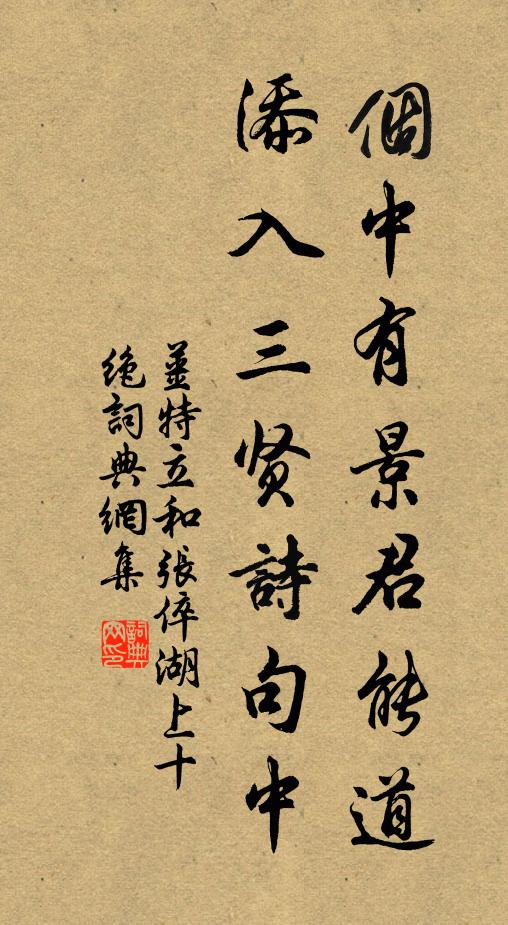 個中有景君能道
添入三贤詩句中
薑特立和張倅湖上十
絕詞典網集
詞典網印